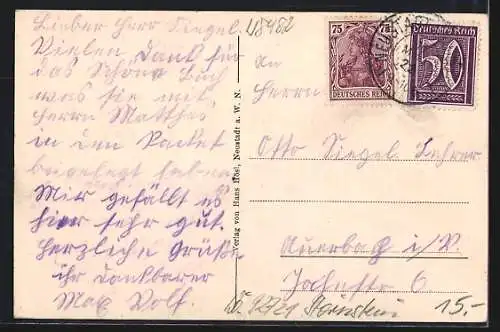 Lieber Herr Siegel.
Vielen Dank für
das schöne Buch
was sie mit
Herrn Matthes
in den Packet
beigelegt haben
Mir gefällt es
hier sehr gut.
Herzliche Grüße
ihr Dankbarer
Max Wolf.
Verlag von Hans Hösl, Neustadt a. W. N.
48982
75 75
DEUTSCHES REICH
Deutsches Reich
50
An
Herrn
Otto Siegel Lehrer
Auerbach i/V.
6
15.-